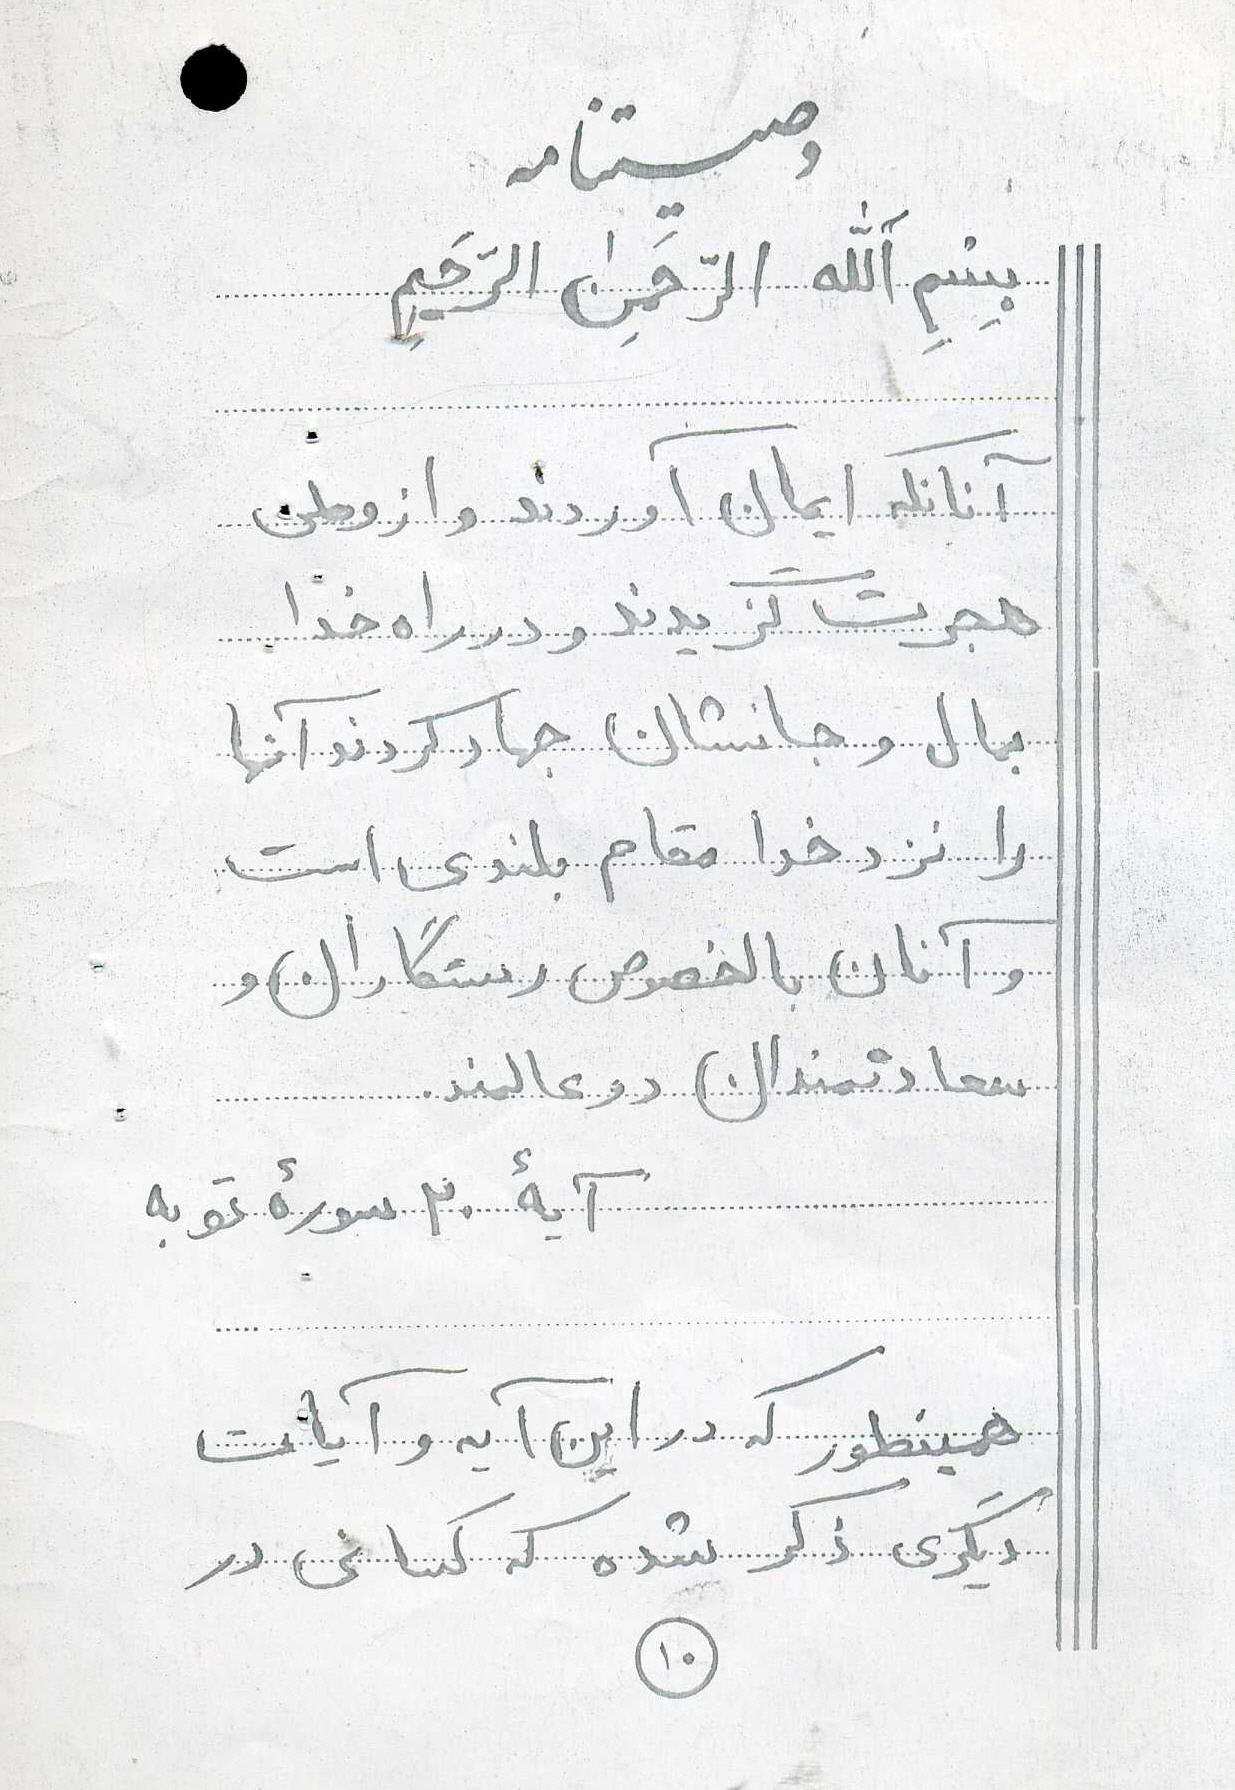 وصیتنامه
بِسْمِ اللّٰه الرّحَمنِ الرّحَیمِ
آنانکه ایمان آوردند و از وطن
هجرت گزیدند و در راه خدا
بمال و جانشان جهاد کردند آنها
را نزد خدا مقام بلندی است
و آنان بالخصوص رستگاران و
سعادتمندان دو عالمند.
آیهٔ ۲۰ سورهٔ توبه
همینطور که در این آیه و آیات
دیگری ذکر شده که کسانی در
۱۰